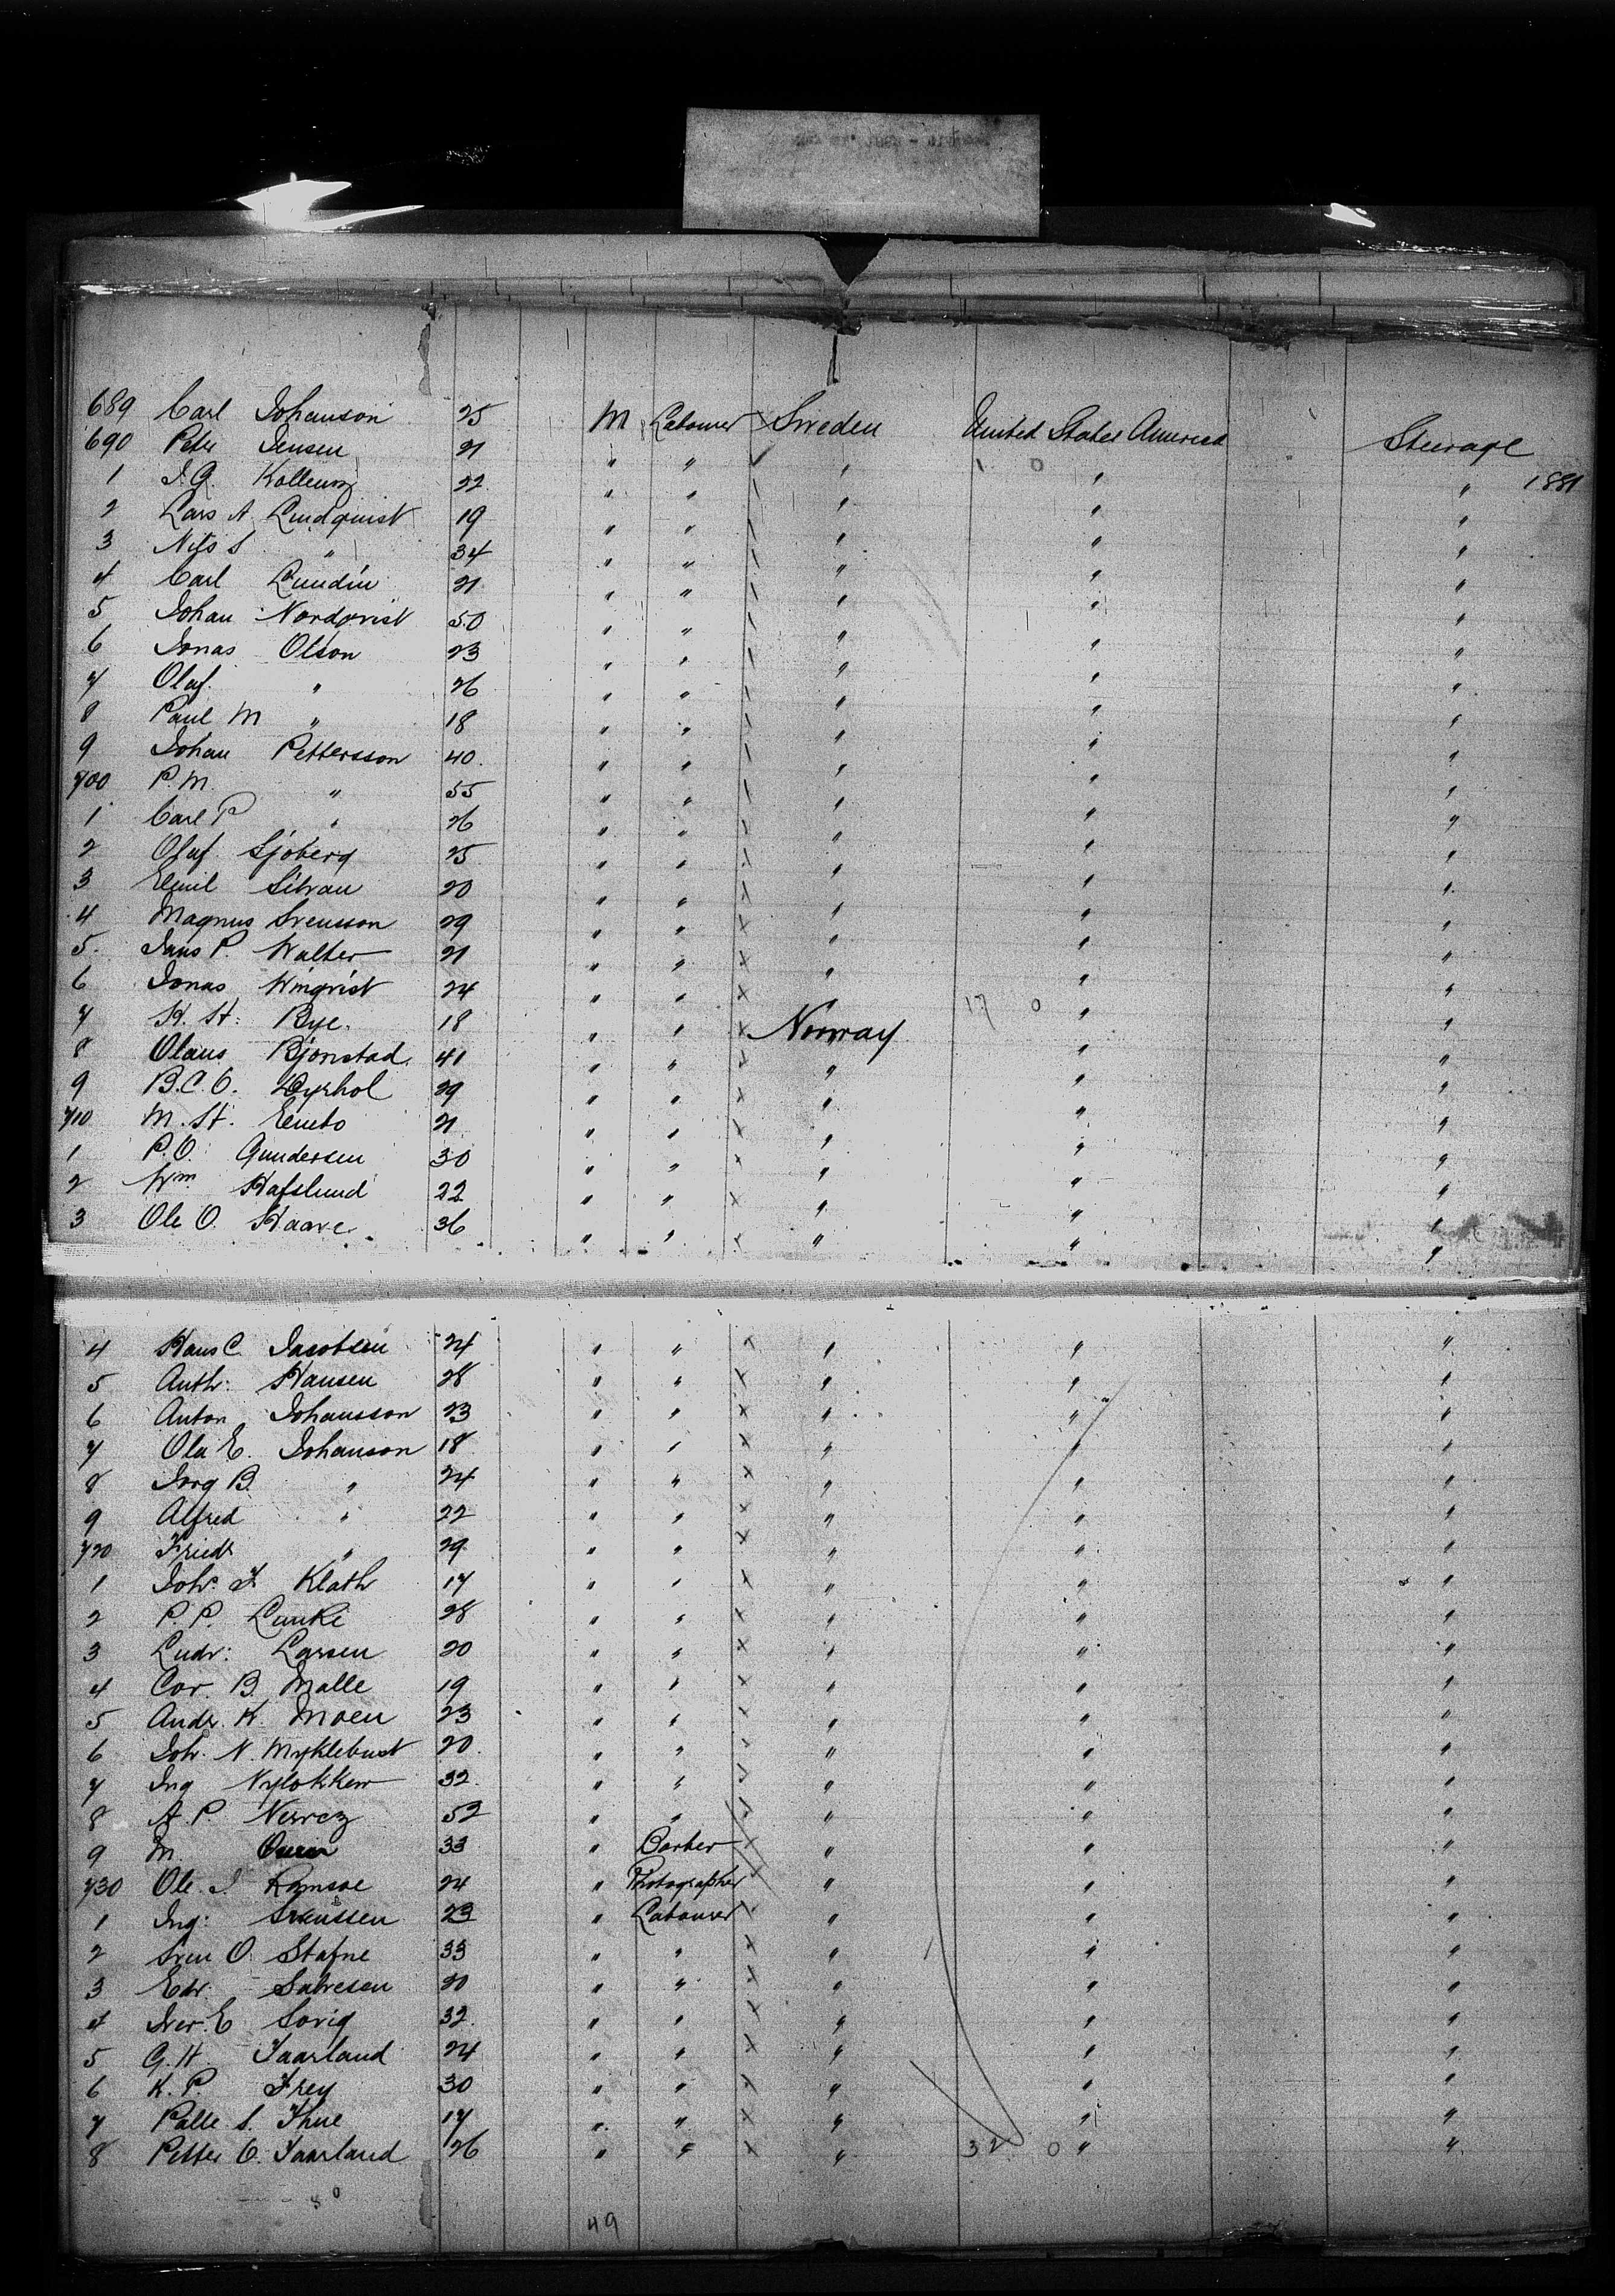 689 Carl Johanson 25 M Labourer Sweden United States America Steerage
690 Peter Jensen 21 " " " " "
1 J. G. 22 " " " " " 1881
2 Lars A. Lindquist 19 " " " " "
3 Nils S " 34 " " " " "
4 Carl Lundin 21 " " " " "
5 Johan Nordqvist 50 " " " " "
6 Jonas Olson 23 " " " " "
7 Olaf " 26 " " " " "
8 Paul M " 18 " " " " "
9 Johan Pettersson 40 " " " " "
700 P. M. " 55 " " " " "
1 Carl P " 26 " " " " "
2 Olaf Sjöberg 25 " " " " "
3 Emil Silvan 20 " " " " "
4 Magnus Svensson 29 " " " " "
5 Jans P. Walter 21 " " " " "
6 Jonas Winqvist 24 " " " " "
17 0
7 H. H. Bye 18 " " Norway " "
8 Olaus Bjonstad 41 " " " " "
9 B. C. O. Dyrhol 29 " " " " "
710 M. H. 21 " " " " "
1 P. O. Gundersen 30 " " " " "
2 Wm Hafslund 22 " " " " "
3 Ole O. Haave 36 " " " " "
4 Hans C. Jacobsen 24 " " " " "
5 Anth: Hansen 28 " " " " "
6 Anton Johansson 23 " " " " "
7 Ola E. Johanson 18 " " " " "
8 Jorg B. " 24 " " " " "
9 Alfred " 22 " " " " "
720 Friedr " 29 " " " " "
1 Joh. F Klath 17 " " " " "
2 P. P. Lanke 28 " " " " "
3 Ludv: Larsen 20 " " " " "
4 Cor. B. Malle 19 " " " " "
5 Andr. K. Moen 23 " " " " "
6 Joh. N. Myklebust 20 " " " " "
7 Ing Nylokken 32 " " " " "
8 A. P. 52 " " " " "
9 M. 33 " Barber " " "
730 Ole J. Ramsoe 24 " Photographer " " "
1 Ing: Svenssen 23 " Labourer " " "
2 Sven O. Stafne 33 " " " " "
3 Edv. Salvesen 20 " " " " "
4 Iver E Sovig 32 " " " " "
5 G. H. Taarland 24 " " " " "
6 K. P. Frey 30 " " " " "
7 Palle S. Thue 17 " " " " "
8 Petter O. Taarland 26 " " " 32 0 " "
49